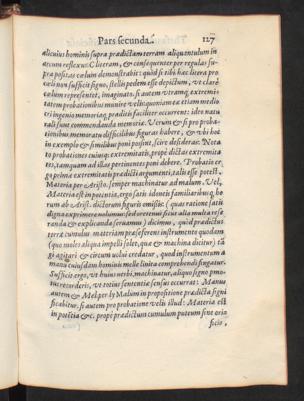 Pars secunda. 127
alicuius hominis supra prædictam terram aliquantulum in
arcum reflexus: Cliceram, & consequenter per regulas su-
pra positas cælum demonstrabit: quod si tibi hæc litera pro
cæli non sufficit signo, stellis pedem esse depictum, vt clarè
cælum repræsentet, imaginato. si autem vtramq; extremi-
tatem probationibus munire velis: quoniam ea etiam medio-
cri ingenio memoriaq; præditis faciliter occurrent: ideo natu
rali sunt commendanda memoriæ. Verum & si pro proba-
tionibus memoratu difficilibus figuras habere, & vbi hoc
in exemplo & similibus poni possint, scire desideras: Nota
probationes cuiusq; extremitatis, propè dictas extremita
tes, tanquam ad illas pertinentes poni debere. Probatis er
go primæ extremitatis prædicti argumenti, talis esse potest,
Materia per Aristo. semper machinatur ad malum. Vel,
Materia est in potentia, ergo satis idonea familiaribus q; ho
rum ab Arist. dictorum figuris omissis: (quas ratione satis
digna exprimere nolumus: sed oretenus sicut alia multa refe-
randa & explicanda seruamus) dicimus, quod prædictus
terræ cumulus materiam præseferens instrumento quodam
(quo moles aliqua impelli solet, quæ & machina dicitur) tā
gi agitari & circum uolui credatur, quod instrumentum à
manu cuiusdam hominis melle linita comprehendi fingatur.
Sufficit ergo, vt huius verbi, machinatur, aliquo signo pmo-
tus recorderis, vt totius sententiæ sensus occurrat: Manus
autem & Mel per ly Malum in propositione prædicta signi
ficabitur, si autem pro probatione velis illud: Materia est
in potētia &c. propè prædictum cumulum puteum siue ori-
ficio,